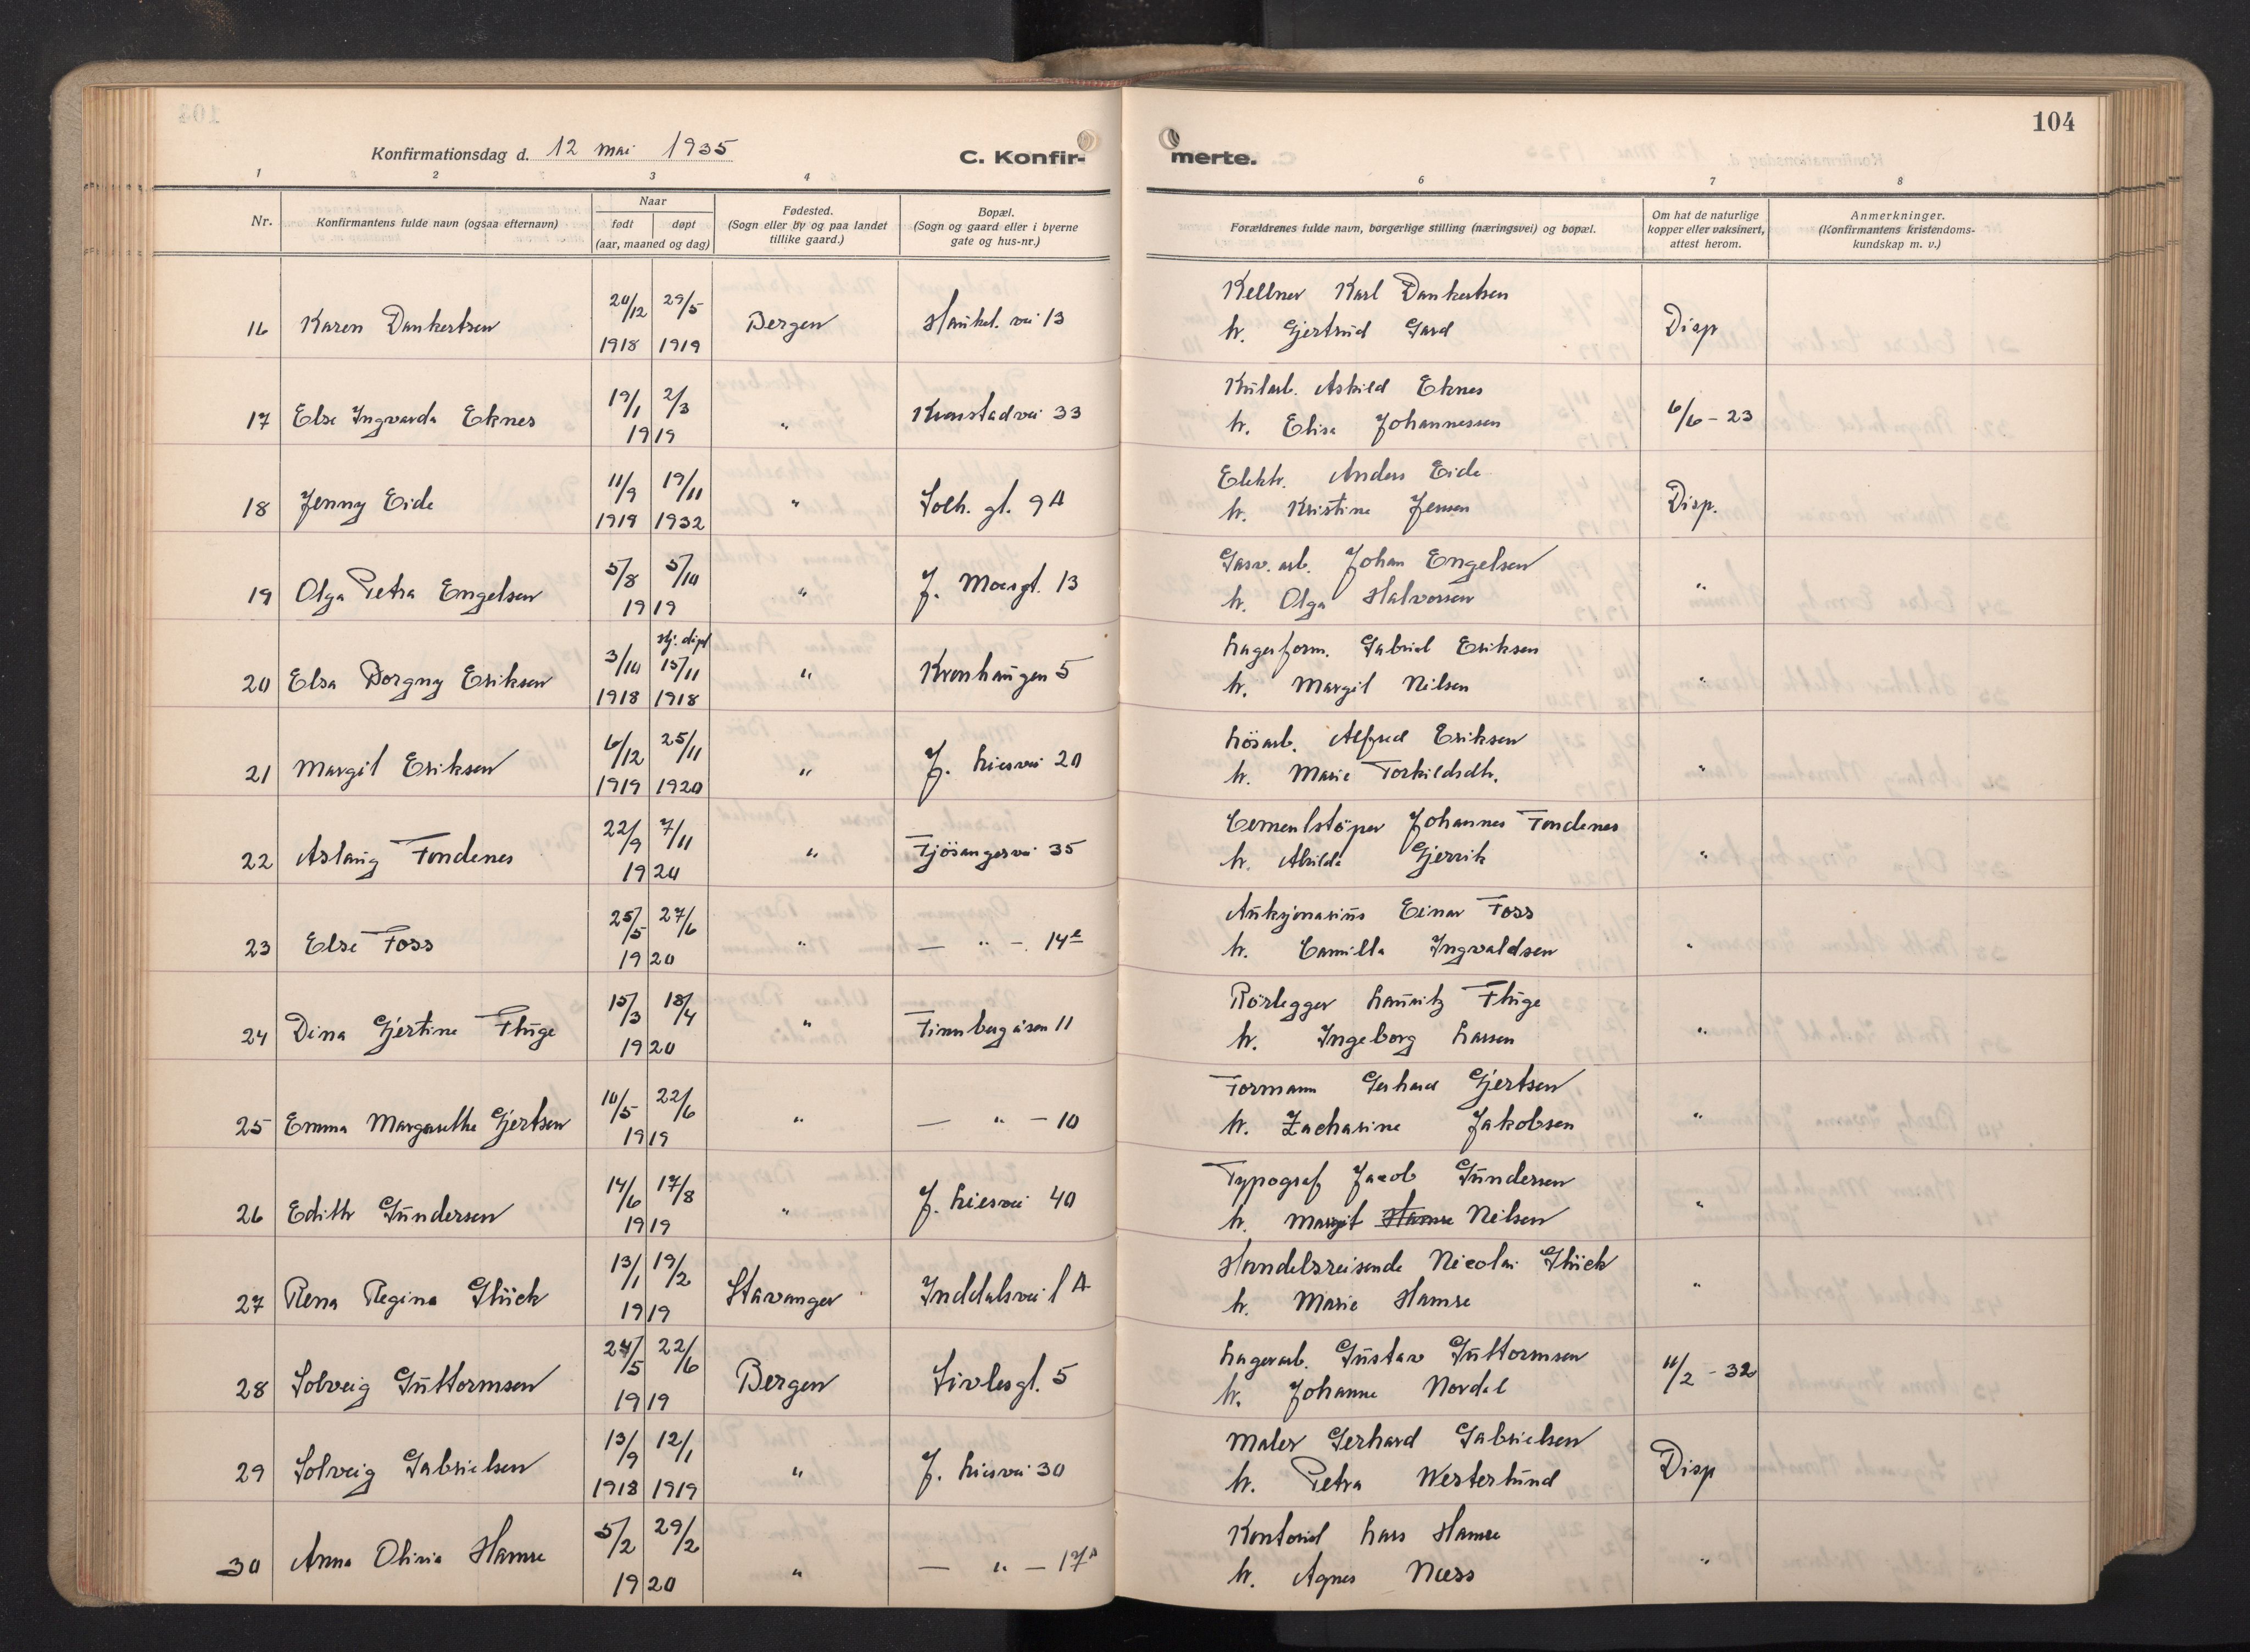 104
Konfirmationsdag d. 12 mai 1935
C. Konfir-
merte.
1 2 3 4 6 7 8
Nr.
Konfirmantens fulde navn (ogsaa efternavn)
Naar
født døpt
(aar, maaned og dag)
Fødested.
(Sogn eller by og paa landet
tillike gaard.)
Bopæl.
(Sogn og gaard eller i byerne
gate og hus-nr.)
Forældrenes fulde navn, borgerlige stilling (næringsvei) og bopæl.
Om hat de naturlige
kopper eller vaksinert,
attest herom.
Anmerkninger.
(Konfirmantens kristendoms-
kundskap m. v.)
20/12 29/5 Kellner Karl Dankertsen
16 Karen Dankertsen Bergen Haukel. vei 13 h. Gjertrud Gard Disp
1918 1919
19/1 2/3 Askild Eknes
17 Else Ingvarda Eknes " Kronstadvei 33 h. Elise Johannessen 6/6 - 23
1919
11/9 19/11 Elektr. Anders Eide
18 Jenny Eide " Solh. gt. 9A h. Kristine Jensen Disp.
1919 1932
5/8 5/10 Gasv. arb. Johan Engelsen
19 Olga Petra Engelsen " J. Moesgt. 13 h. Olga Halvorsen "
1919
hj. døpt
3/10 15/11 Lagerform. Gabriel Eriksen
20 Elsa Borgny Eriksen " Kronhaugen 5 h. Margit Nilsen "
1918 1918
6/12 25/11 Løsarb. Alfred Eriksen
21 Margit Eriksen " J. Liesvei 20 h. Marie Torkildsdtr. "
1919 1920
22/9 7/11 Cementstøper Johannes Fondenes
22 Aslaug Fondenes " Fjøsangervei 35 h. Gjervik "
1920
25/5 27/6 Auksjonarius Einar Foss
23 Else Foss " — " — 14 h. Camilla Ingvaldsen "
1920
15/3 18/4 Rørlegger Lauritz Fluge
24 Dina Gjertine Fluge " Finnbergåsen 11 h. Ingeborg Larsen "
1920
10/5 22/6 Formann Gerhard Gjertsen
25 Emma Margarethe Gjertsen " — " — 10 h. Zacharine Jakobsen "
1919
14/6 17/8 Typograf Jacob Gundersen
26 Edith Gundersen " J. Liesvei 40 h. Margit Hamre Nilsen "
1919
13/1 19/2 Handelsreisende Nicolai Glück
27 Rena Regina Glück Stavanger Inddalsvei 1 A h. Marie Hamre "
1919
24/5 22/6 Lagerarb. Gustav Guttormsen
28 Solveig Guttormsen Bergen Sivlesgt. 5 h. Johanne Nordal 11/2 - 32
1919
13/9 12/1 Maler Gerhard Gabrielsen
29 Solveig Gabrielsen " J. Liesvei 30 h. Petra Westerlund Disp
1918 1919
5/2 29/2 Kontorist Lars Hamre
30 Anna Olivia Hamre " — " — 17A h. Agnes Næss "
1920